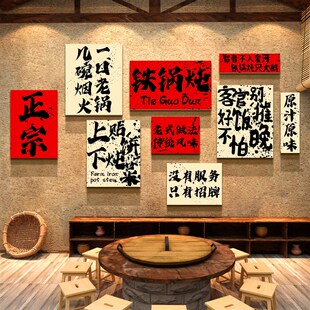 正宗
一口老锅
几碗烟火
铁锅炖
Tie Guo Dun
智者不入爱河
铁锅炖只火鹅
上贴饼
下炖
Farm iron
pot stew
老式做法
传统风味
客官别催
饭好不怕晚
原汁原味
没有服务
只有招牌